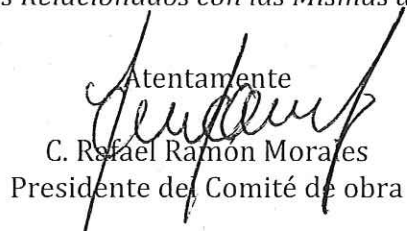 s Relacionados con las Mismas d
Atentamente
C. Rafael Ramón Morales
Presidente del Comité de obra